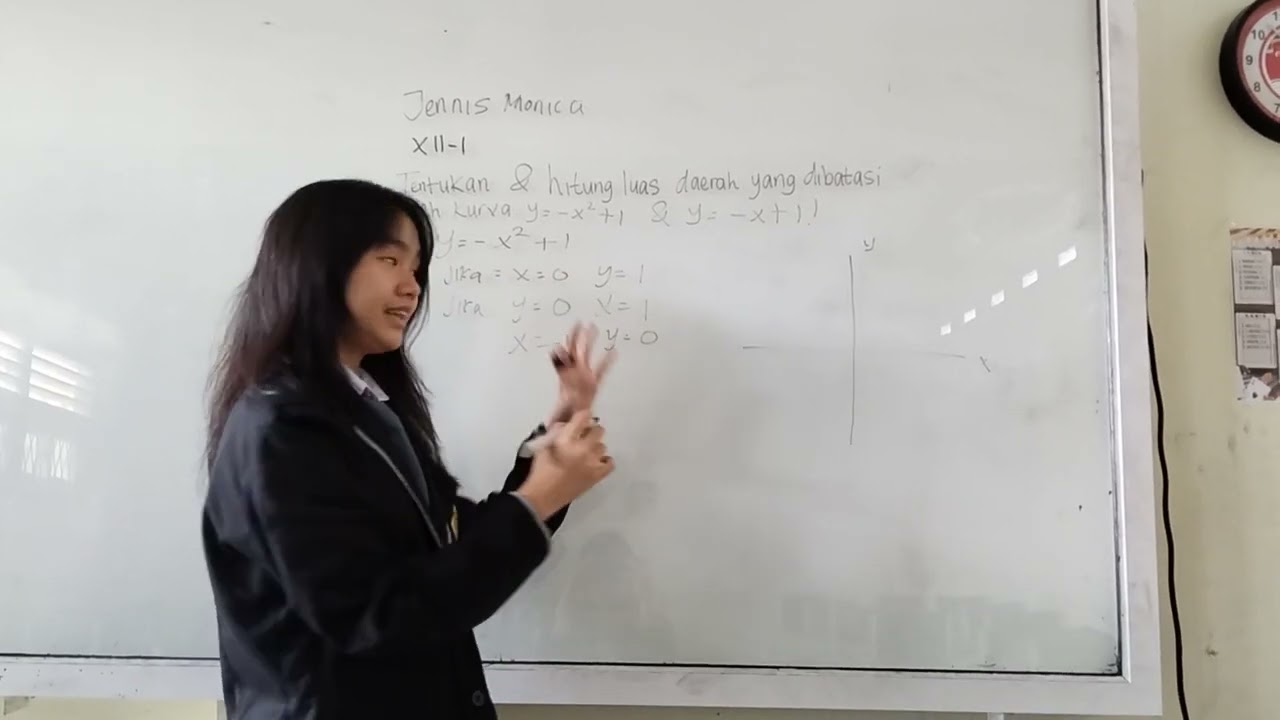 Jennis Monica
XII-1
Tentukan & hitung luas daerah yang dibatasi
kurva y = -x² + 1 & y = -x + 1!
y = -x² + 1
Jika = x = 0 y = 1
Jika y = 0 x = 1
x = y = 0
y
x
10
9
8
7